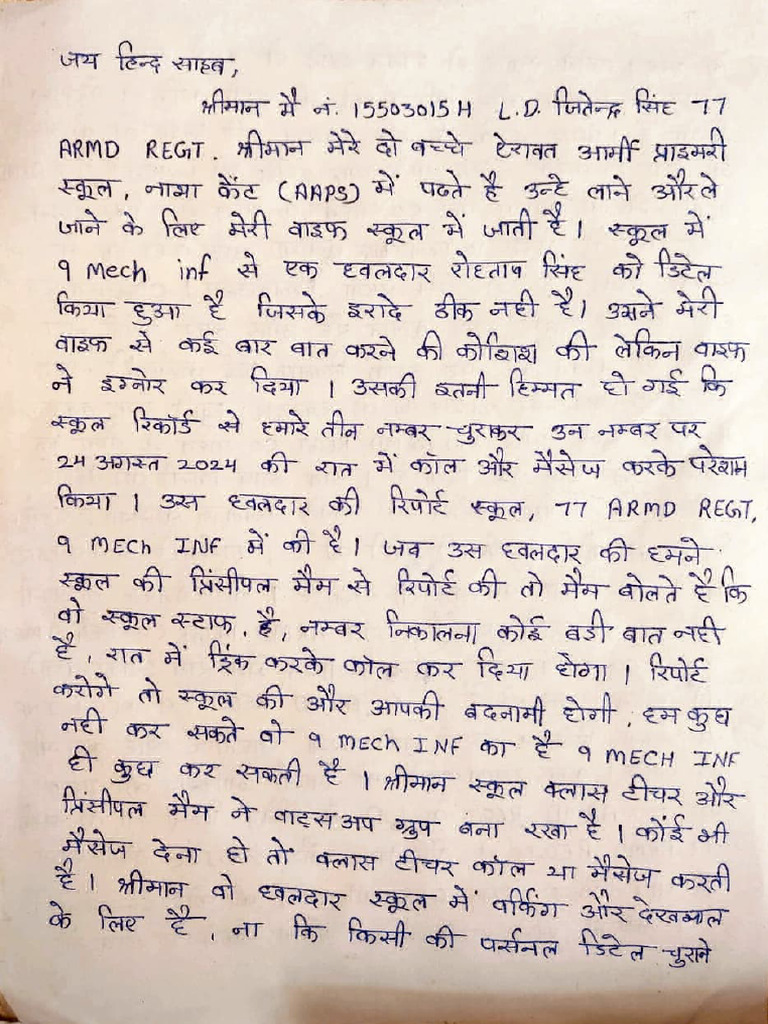 जय हिन्द साहब,
श्रीमान मै नं. 15503015H L.D. जितेन्द्र सिंह 77
ARMD REGT. श्रीमान मेरे दो बच्चे ऐरावत आर्मी प्राइमरी
स्कूल, नाभा कैंट (AAPS) में पढते है उन्हे लाने और ले
जाने के लिए मेरी वाइफ स्कूल में जाती है। स्कूल में
9 Mech inf से एक हवलदार रोहताश सिंह को डिटेल
किया हुआ है जिसके इरादे ठीक नही है। उसने मेरी
वाइफ से कई बार बात करने की कोशिश की लेकिन वाइफ
ने इग्नोर कर दिया । उसकी इतनी हिम्मत हो गई कि
स्कूल रिकॉर्ड से हमारे तीन नम्बर चुराकर उन नम्बर पर
24 अगस्त 2024 की रात में कॉल और मैसेज करके परेशान
किया । उस हवलदार की रिपोर्ट स्कूल, 77 ARMD REGT,
9 MECh INF में की है। जब उस हवलदार की हमने
स्कूल की प्रिंसीपल मैम से रिपोर्ट की तो मैम बोलते है कि
वो स्कूल स्टाफ है, नम्बर निकालना कोई बडी बात नही
है, रात में ड्रिंक करके कॉल कर दिया होगा । रिपोर्ट
करोगे तो स्कूल की और आपकी बदनामी होगी, हम कुछ
नही कर सकते वो 9 MECH INF का है 9 MECH INF
ही कुछ कर सकती है । श्रीमान स्कूल क्लास टीचर और
प्रिंसीपल मैम ने वाट्सअप ग्रुप बना रखा है । कोई भी
मैसेज देना हो तो क्लास टीचर कॉल या मैसेज करती
है। श्रीमान वो हवलदार स्कूल में वर्किंग और देखभाल
के लिए है, ना कि किसी की पर्सनल डिटेल चुराने